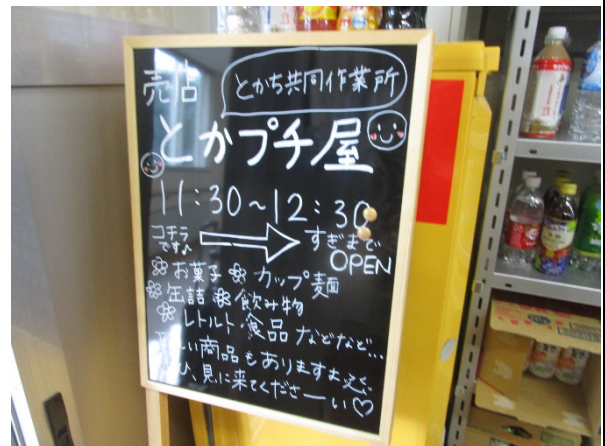 売店 とかち共同作業所
とかプチ屋
11:30〜12:30
コチラ
です♪
すぎまで
OPEN
お菓子 カップ麺
缶詰 飲み物
レトルト食品 などなど…
しい商品もありますよ
ひ、見に来てくださーい♡